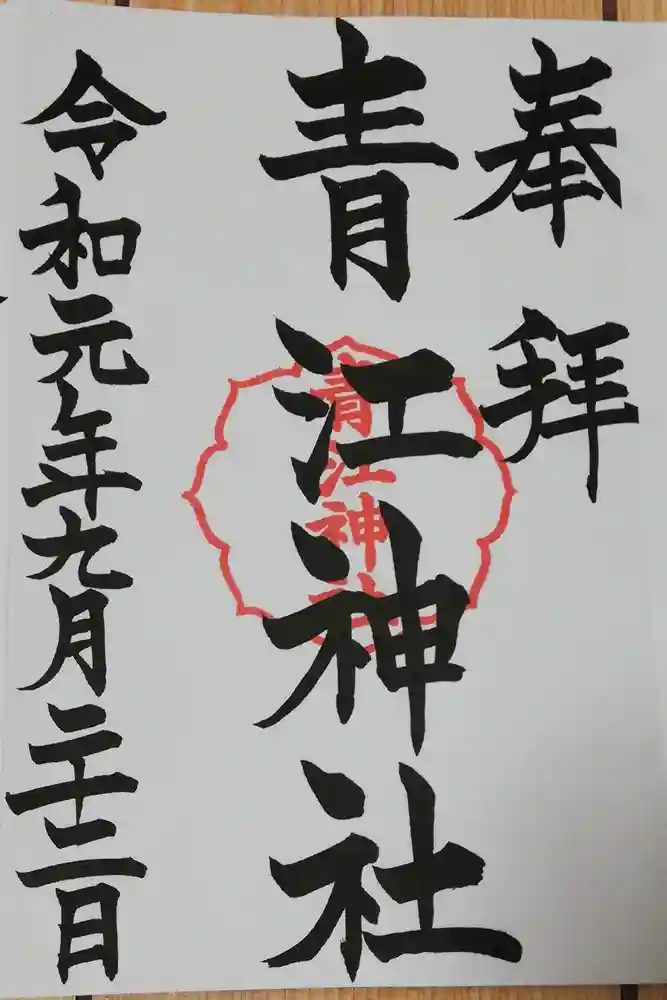 奉拝
青江神社
青江神社
令和元年九月二十二日